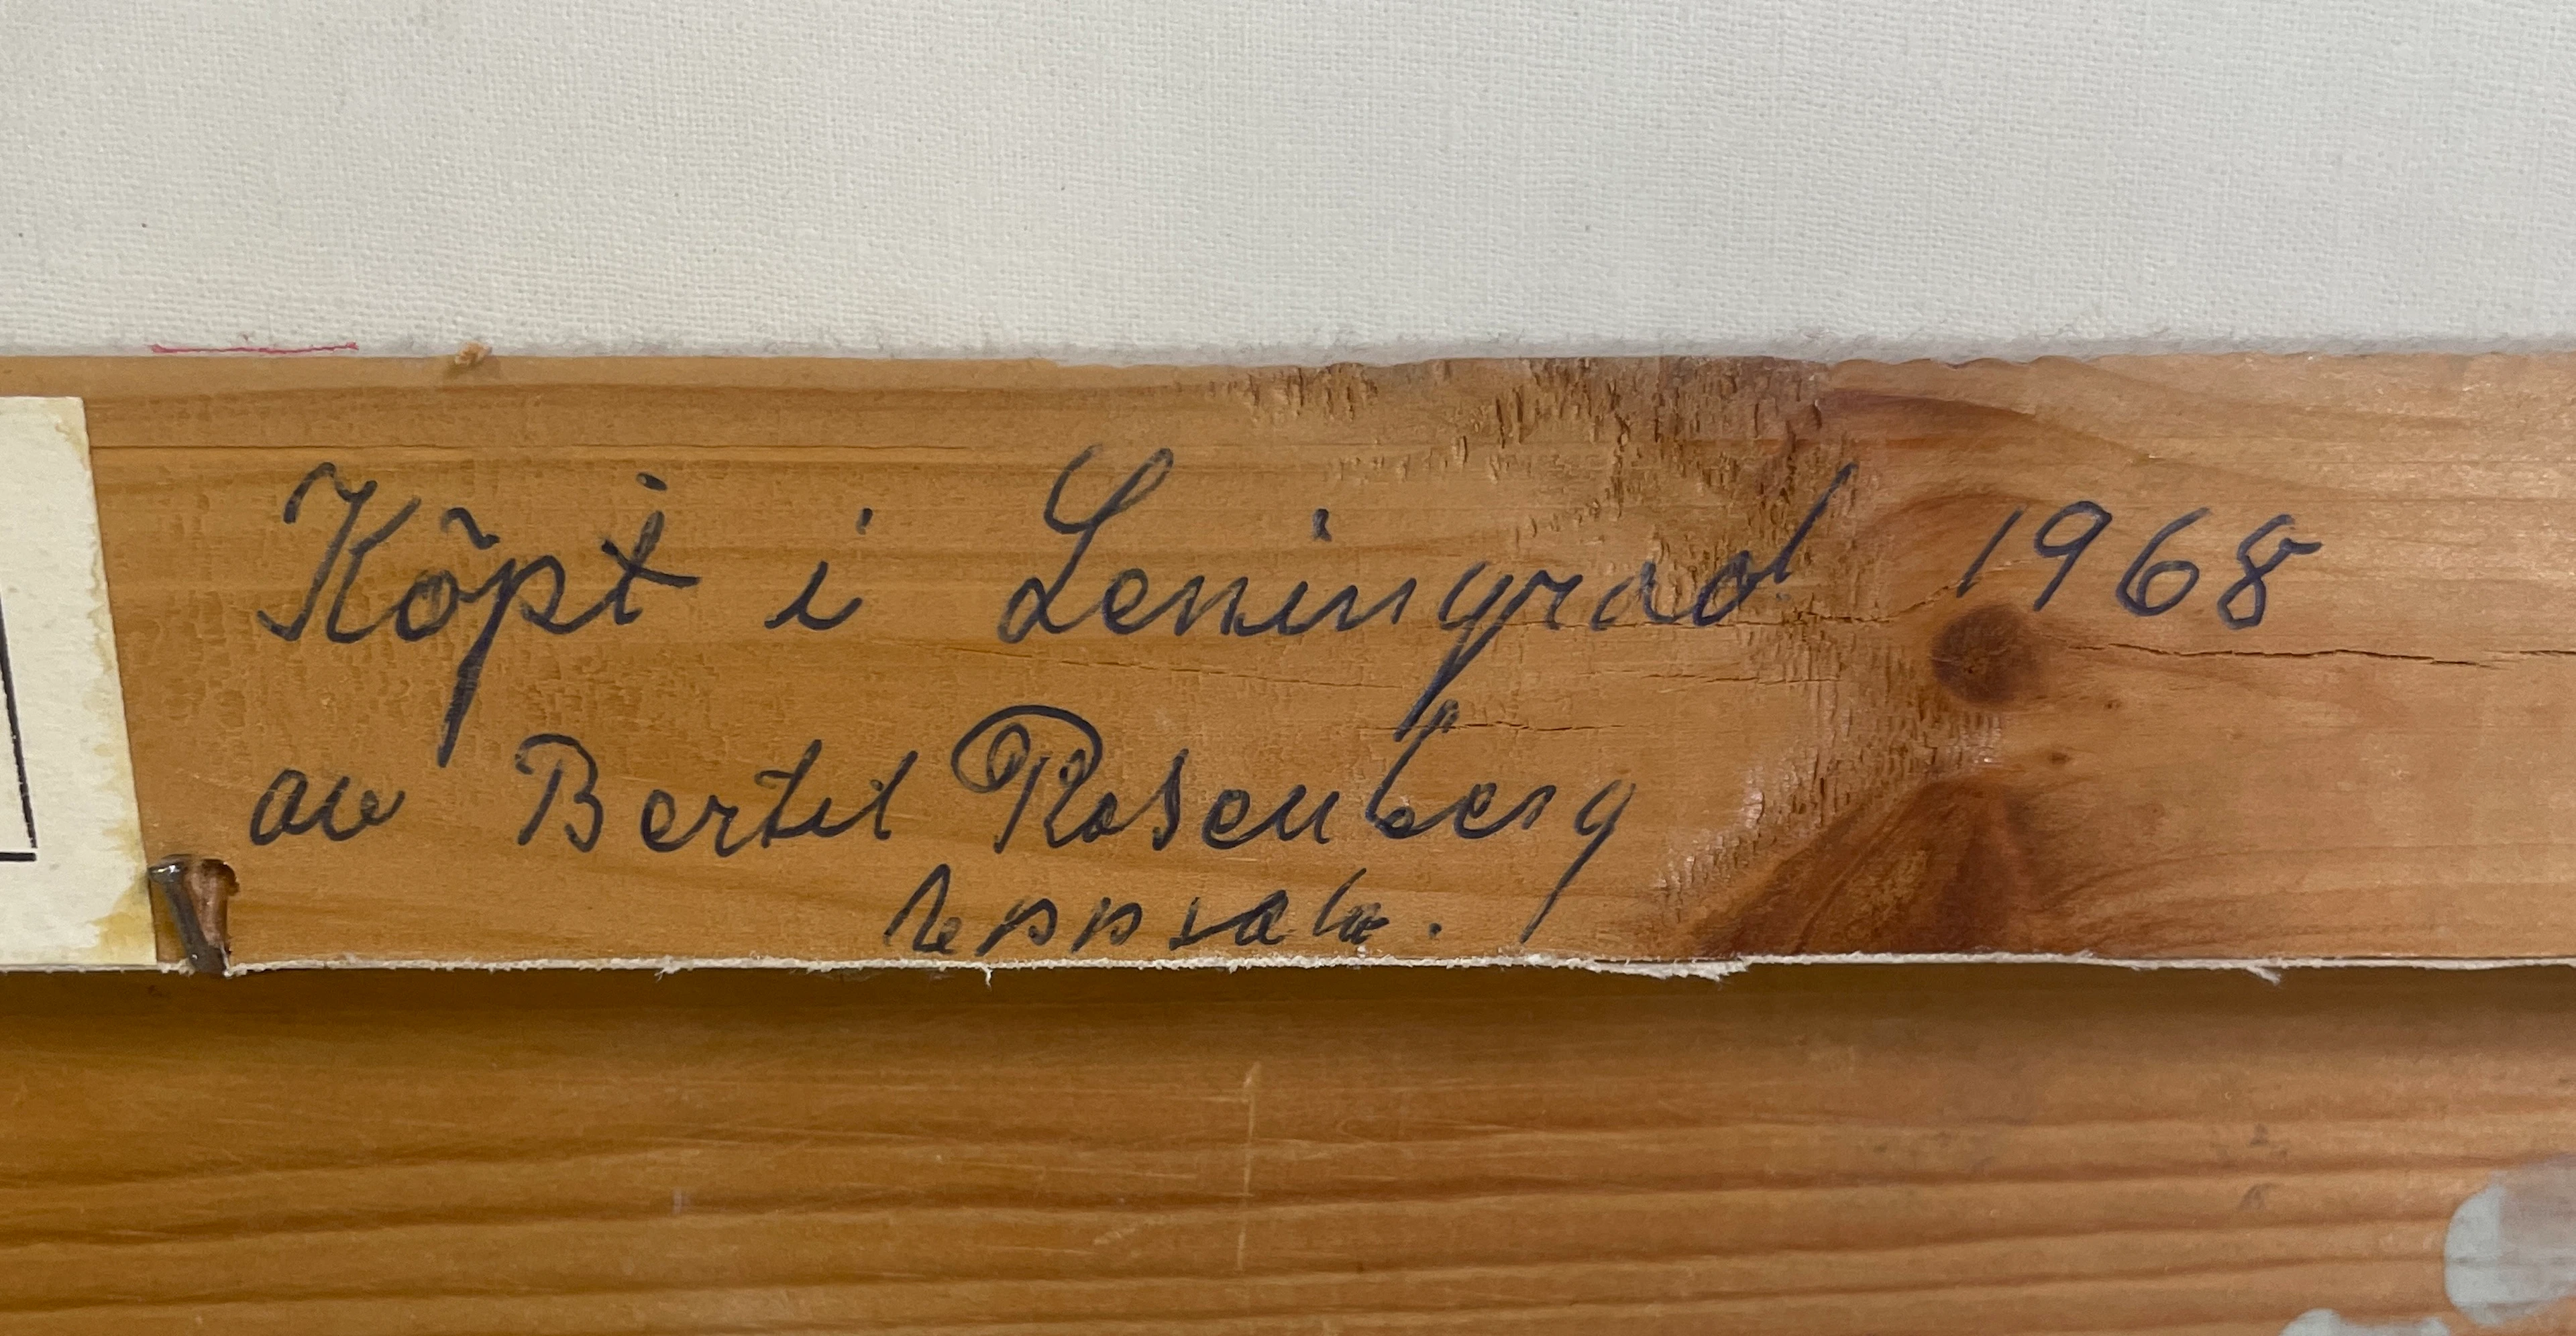 Köpt i Leningrad 1968
av Bertil Rosenberg
Uppsala.